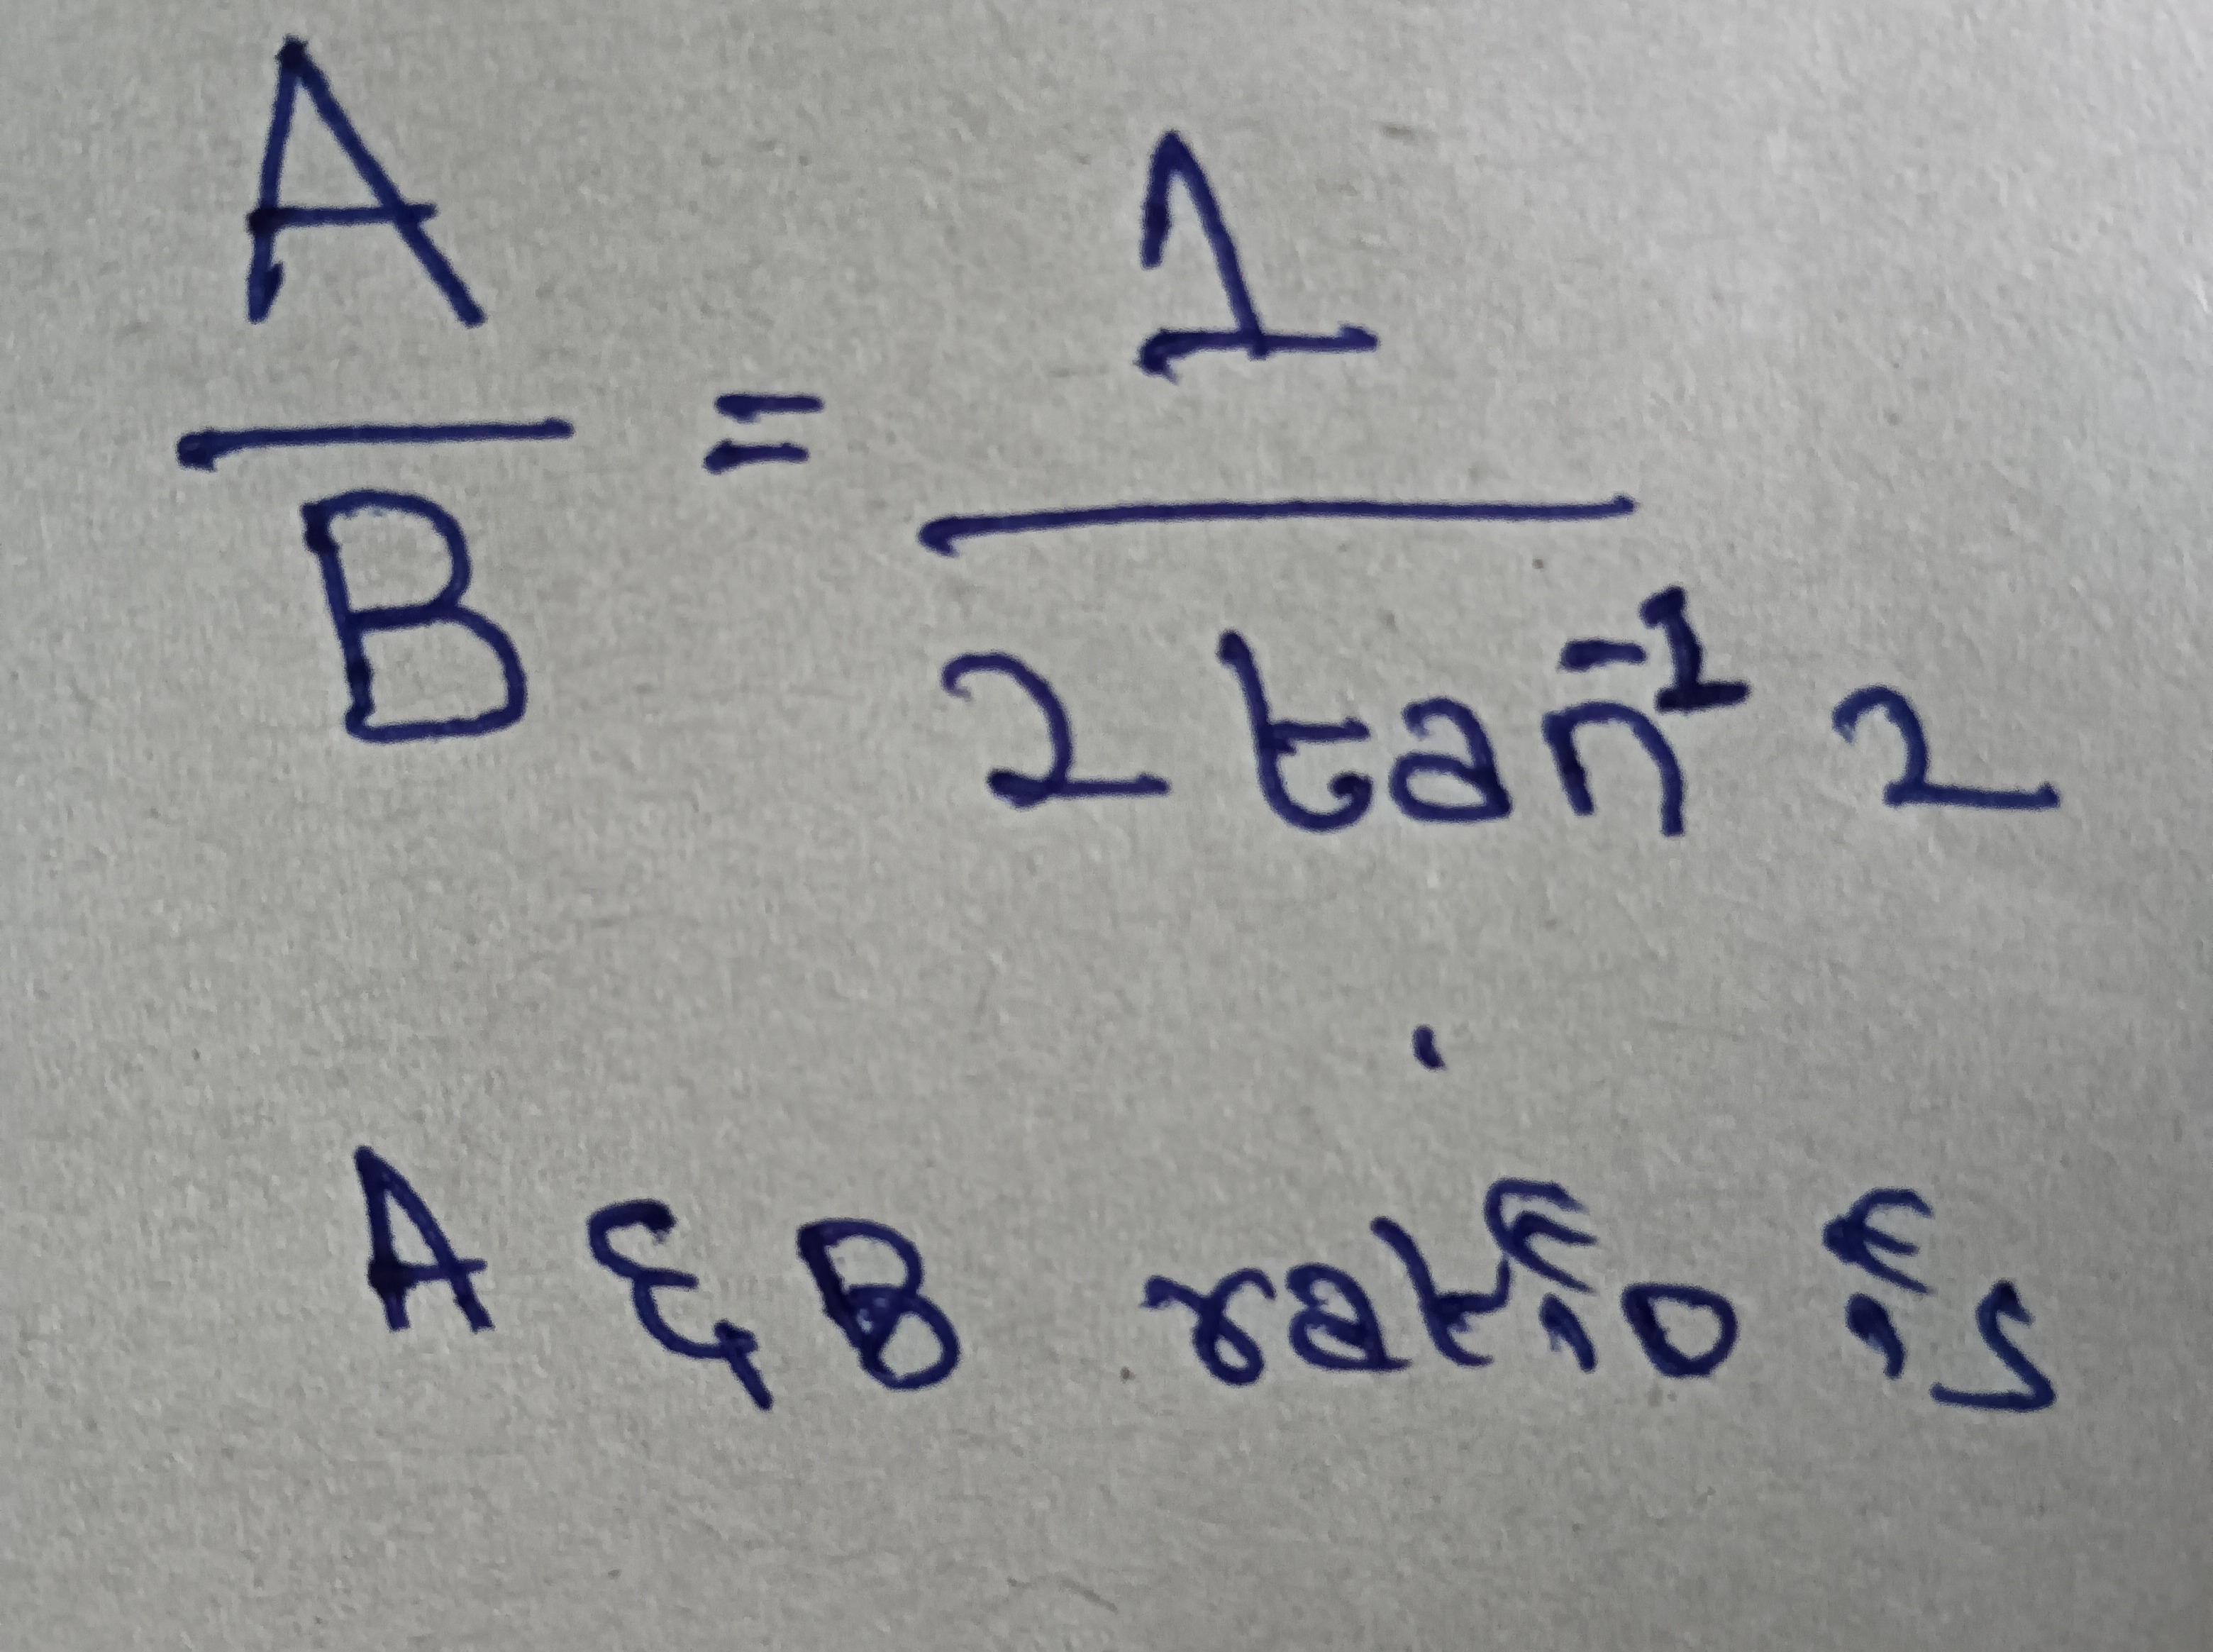 A/B = 1/(2 tan⁻¹ 2)
A & B ratio is